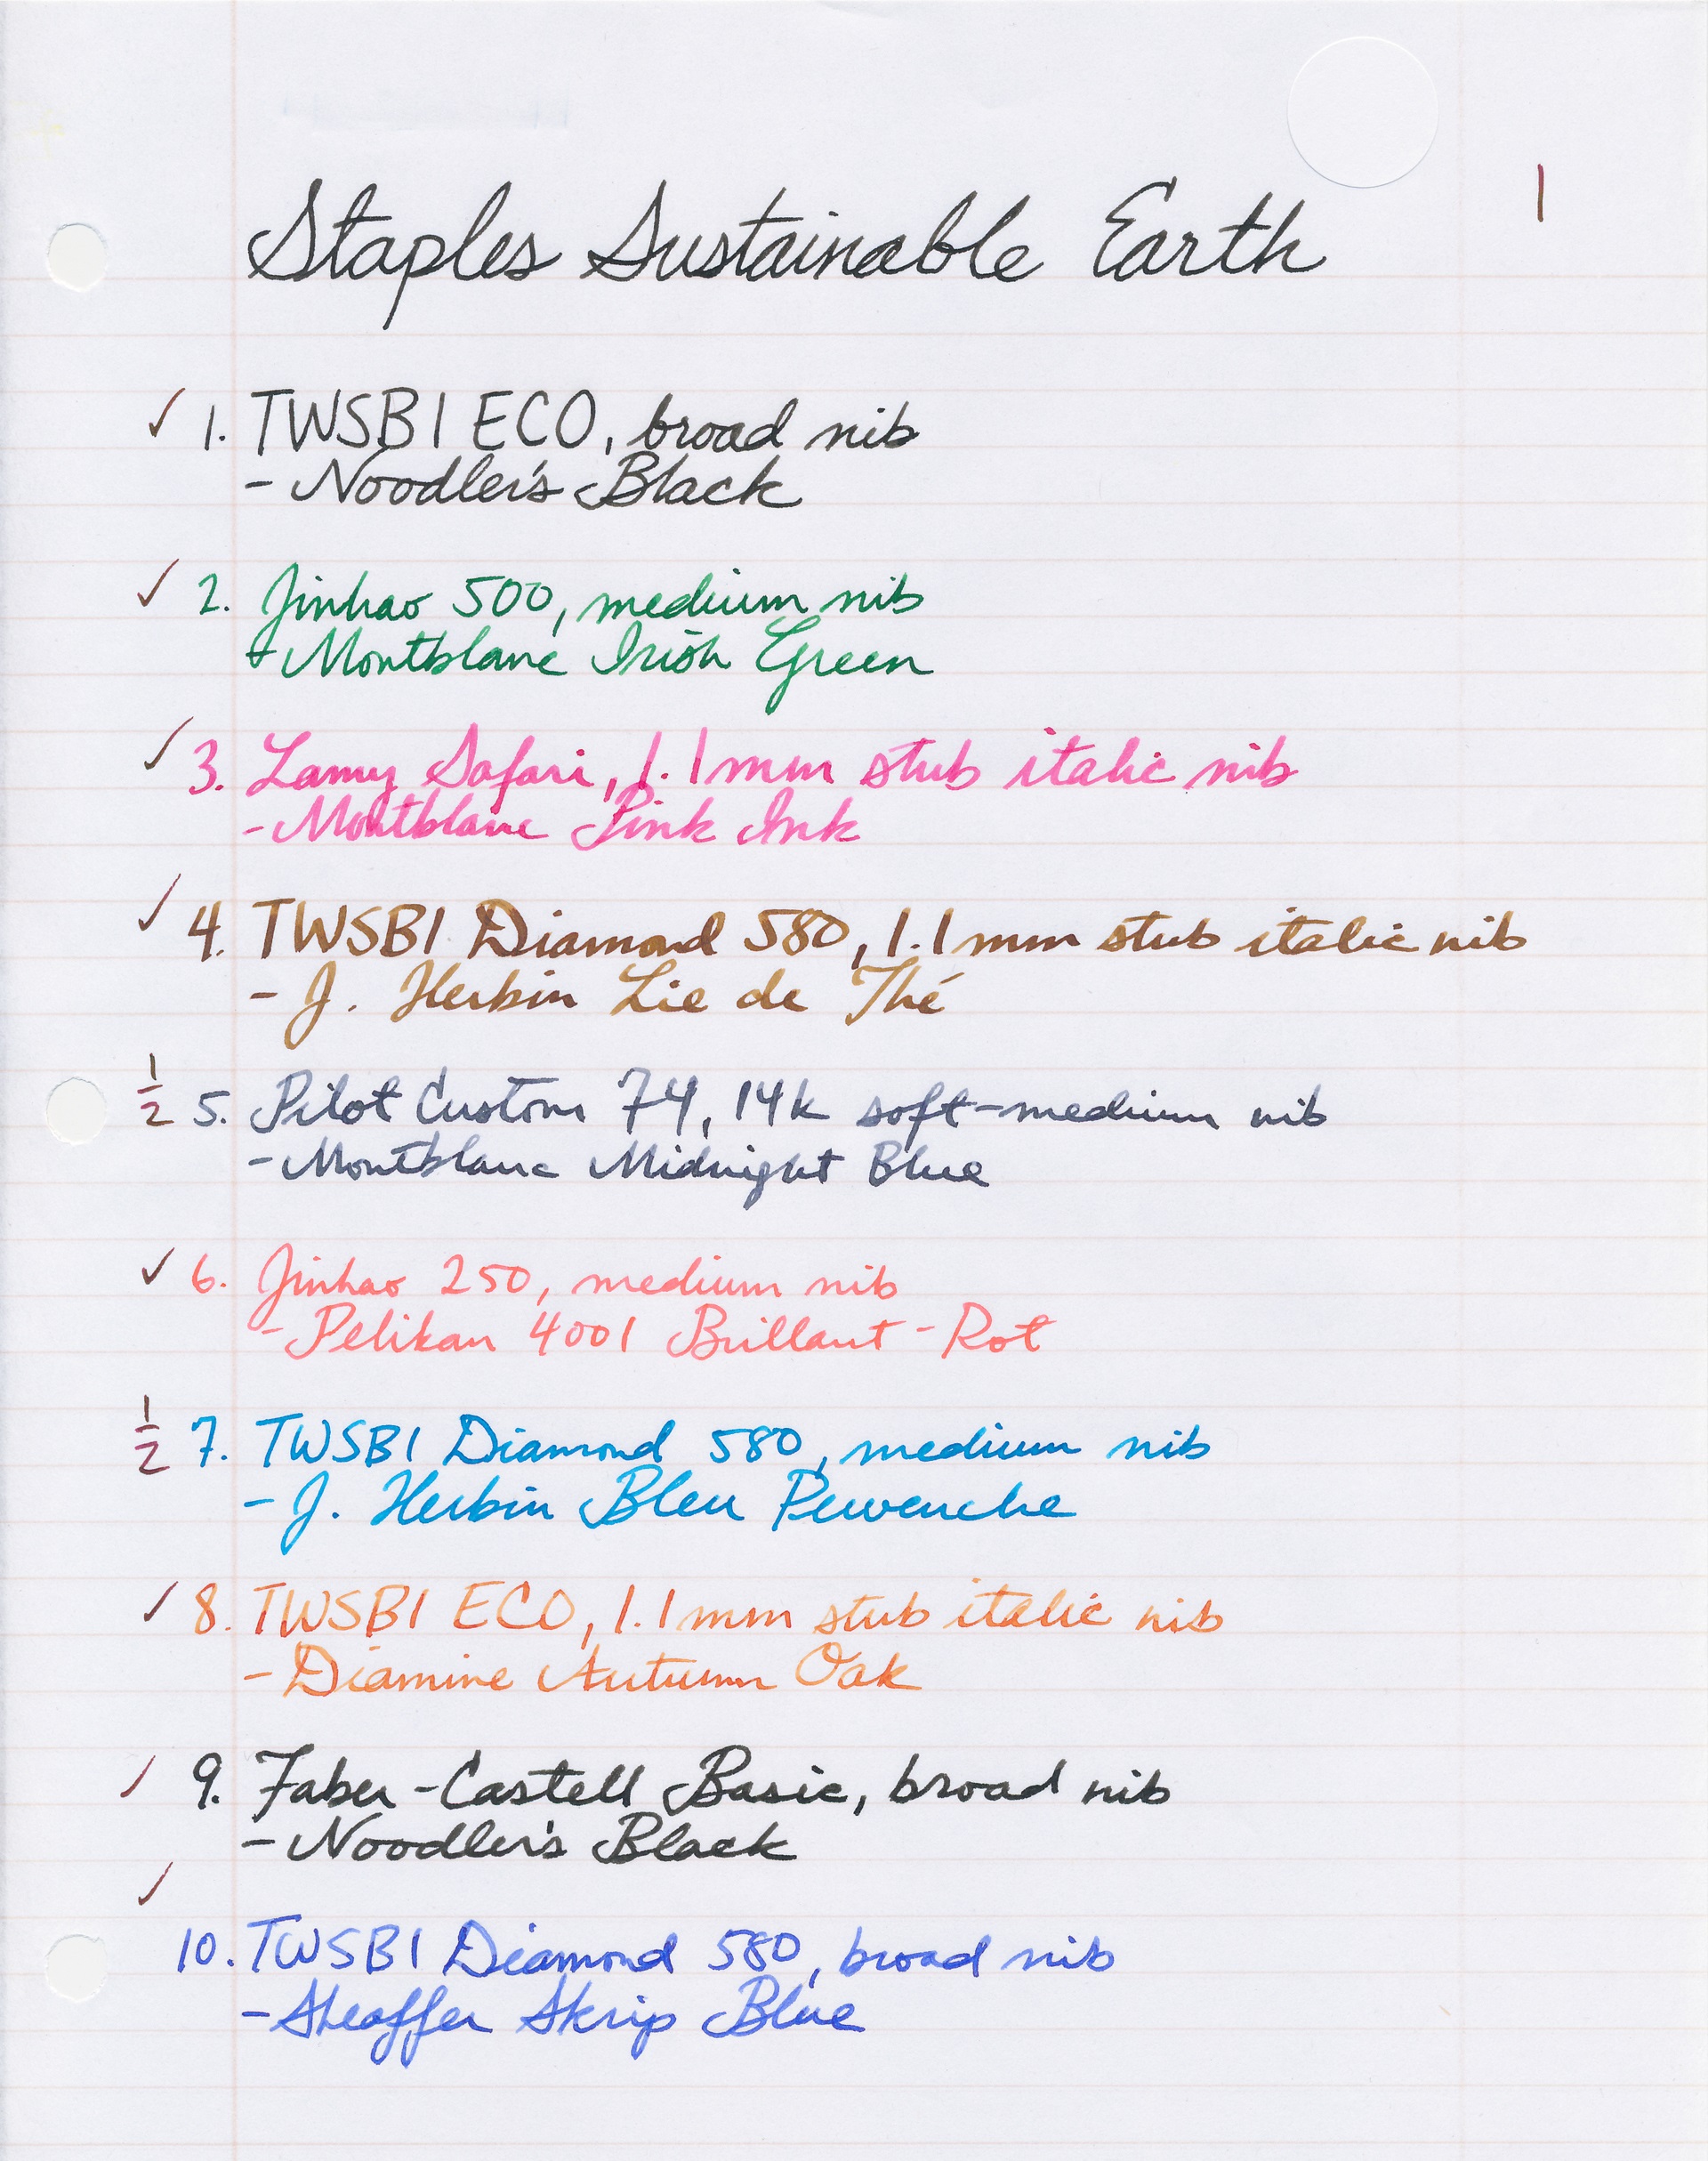 1
Staples Sustainable Earth
✓ 1. TWSBI ECO, broad nib
- Noodler's Black
✓ 2. Jinhao 500, medium nib
- Montblanc Irish Green
✓ 3. Lamy Safari, 1.1mm stub italic nib
- Montblanc Pink Ink
✓ 4. TWSBI Diamond 580, 1.1mm stub italic nib
- J. Herbin Lie de Thé
1/2 5. Pilot Custom 74, 14k soft-medium nib
- Montblanc Midnight Blue
✓ 6. Jinhao 250, medium nib
- Pelikan 4001 Brillant-Rot
1/2 7. TWSBI Diamond 580, medium nib
- J. Herbin Bleu Pervenche
✓ 8. TWSBI ECO, 1.1mm stub italic nib
- Diamine Autumn Oak
✓ 9. Faber-Castell Basic, broad nib
- Noodler's Black
✓ 10. TWSBI Diamond 580, broad nib
- Sheaffer Skrip Blue